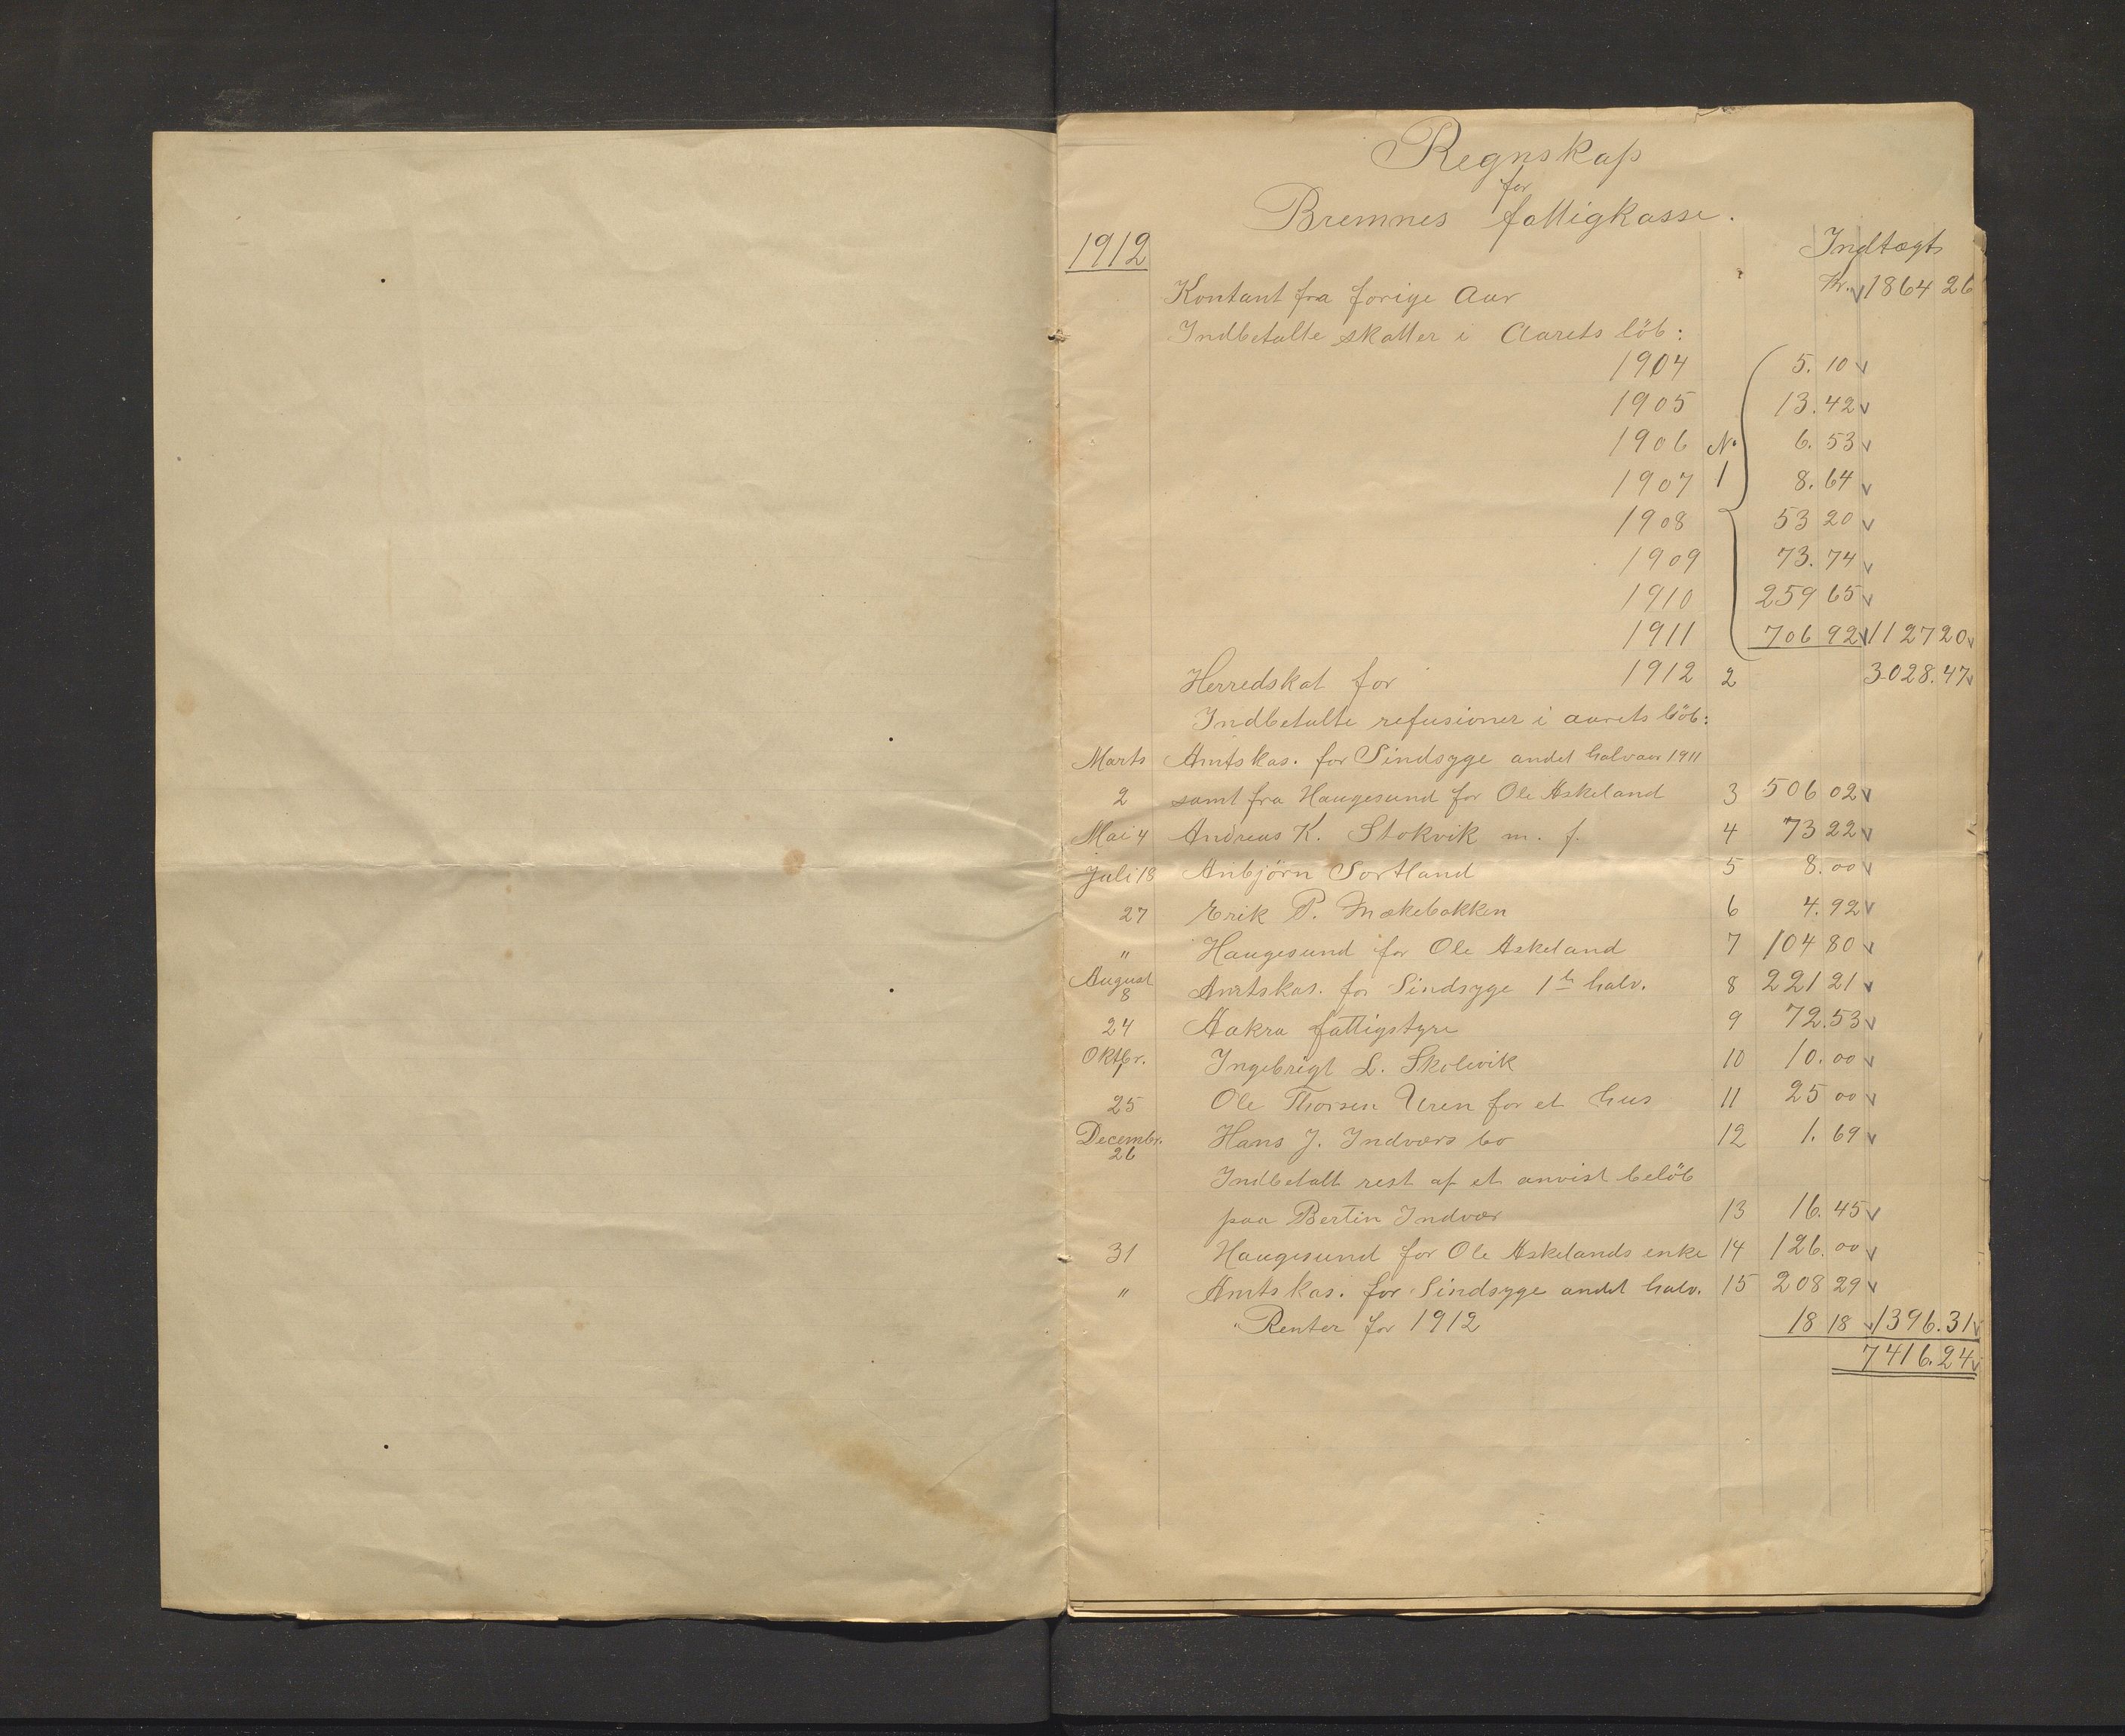 Regnskap
for
Bremnes fattigkasse.
1912
Indtægt
Kontant fra forige Aar Kr. 1864 26
Indbetalte skatter i Aarets löb:
1904 5. 10
1905 13. 42
1906 No 6. 53
1907 1 8. 64
1908 53 20
1909 73. 74
1910 259 65
1911 706 92 1127 20
Herredskat for 1912 2 3028. 47
Indbetalte refusioner i aarets löb:
Marts Amtskas. for Sindsyge andet halvaar 1911
2 samt fra Haugesund for Ole Askeland 3 506 02
Mai 4 Andreas K. Stokvik m. f. 4 73 22
Juli 18 Anbjørn Sortland 5 8. 00
27 Erik P. Mækebakken 6 4. 92
" Haugesund for Ole Askeland 7 104 80
August
8 Amtskas. for Sindsyge 1ste halv. 8 221 21
24 Aakra fattigstyre 9 72. 53
Oktbr.
1 Ingebrigt L. Skolevik 10 10. 00
25 Ole Thorsen Uren for et hus 11 25 00
Decembr.
26 Hans J. Indværs bo 12 1. 69
Indbetalt rest af et anvist belöb
paa Bertin Indvær 13 16. 45
31 Haugesund for Ole Askelands enke 14 126. 00
" Amtskas. for Sindsyge andet halv. 15 208 29
" Renter for 1912 18 18 1396. 31
7416. 24